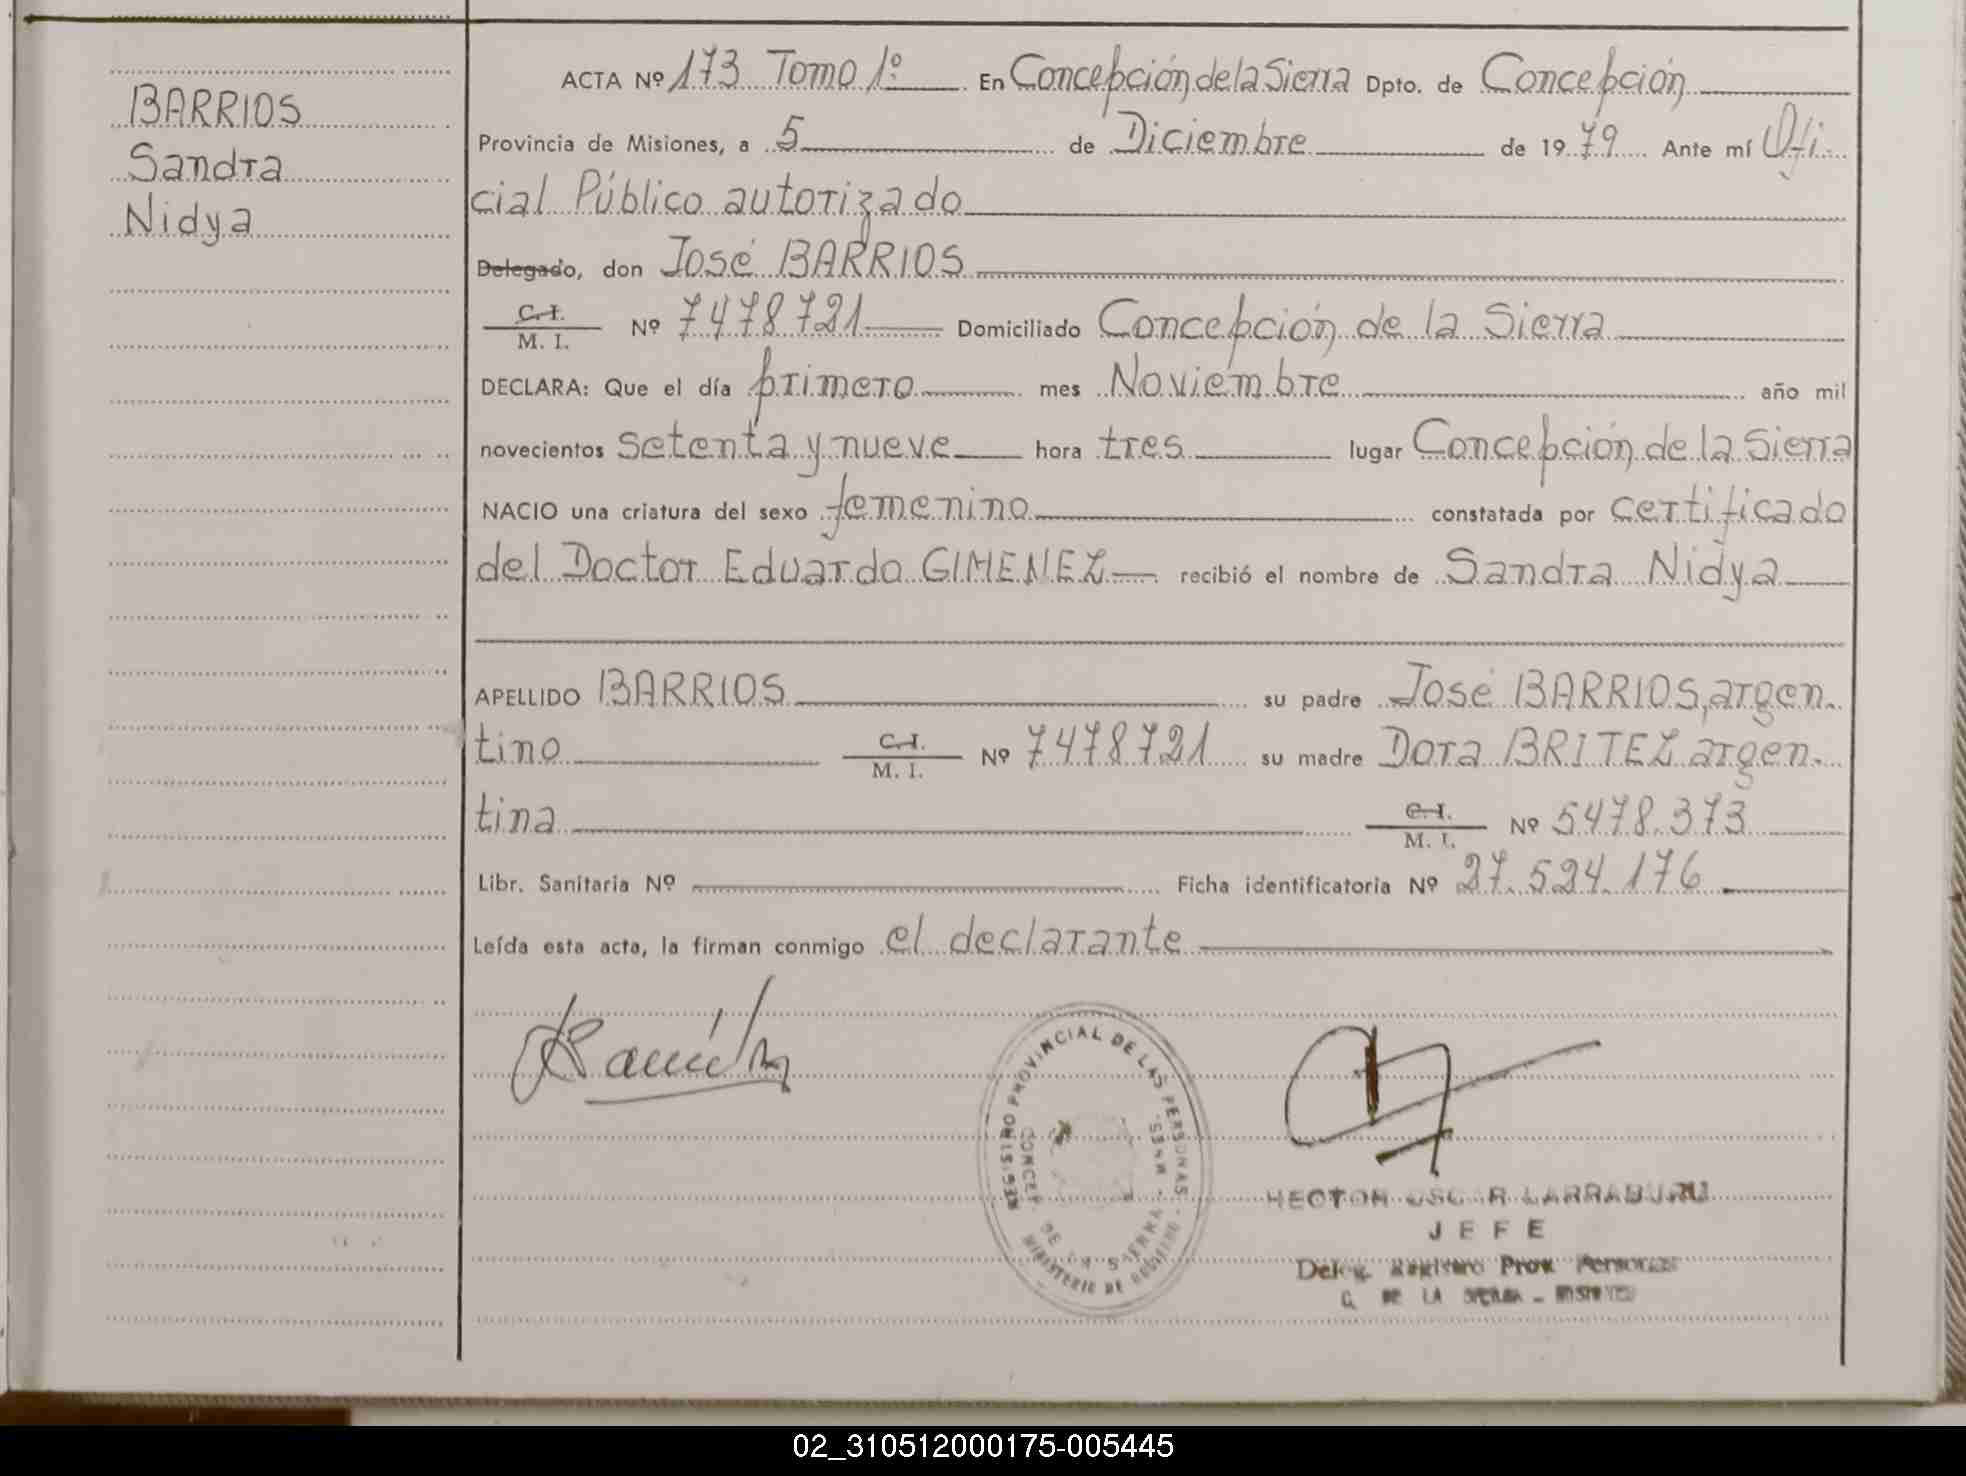 BARRIOS
Sandra
Nidya
ACTA Nº 173 Tomo 1º En Concepción de la Sierra Dpto. de Concepción
Provincia de Misiones, a 5 de Diciembre de 1979 Ante mí Ofi
cial Público autorizado
Delegado, don José BARRIOS
C. I.
M. I. Nº 7478721 Domiciliado Concepción de la Sierra
DECLARA: Que el día primero mes Noviembre año mil
novecientos setenta y nueve hora tres lugar Concepción de la Sierra
NACIO una criatura del sexo femenino constatada por certificado
del Doctor Eduardo GIMENEZ recibió el nombre de Sandra Nidya
APELLIDO BARRIOS su padre José BARRIOS, argen-
tino C. I.
M. I. Nº 7478721 su madre Dora BRITEZ argen-
tina C. I.
M. I. Nº 5478.373
Libr. Sanitaria Nº Ficha identificatoria Nº 27.524.176
Leída esta acta, la firman conmigo el declarante
REGISTRO PROVINCIAL DE LAS PERSONAS
CONCEP. DE LA SIERRA - MNES.
MINISTERIO DE GOBIERNO
HECTOR OSCAR LARRABURU
JEFE
Deleg. Registro Prov. Personas
C. DE LA SIERRA - MISIONES
02_310512000175-005445